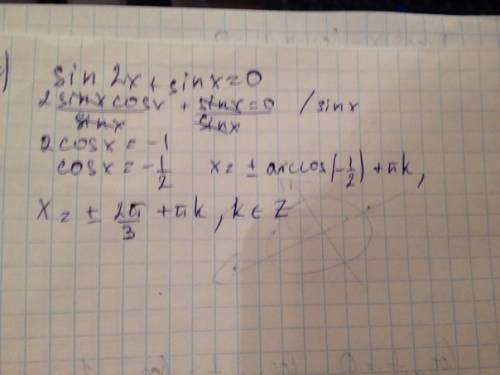 c) sin 2x + sin x = 0
2 sinx cosx / sinx + sinx = 0 / sinx /sinx
2cosx = -1
cosx = -1/2 x = ± arccos(-1/2) + πk,
x = ± 2π/3 + πk, k ∈ Z